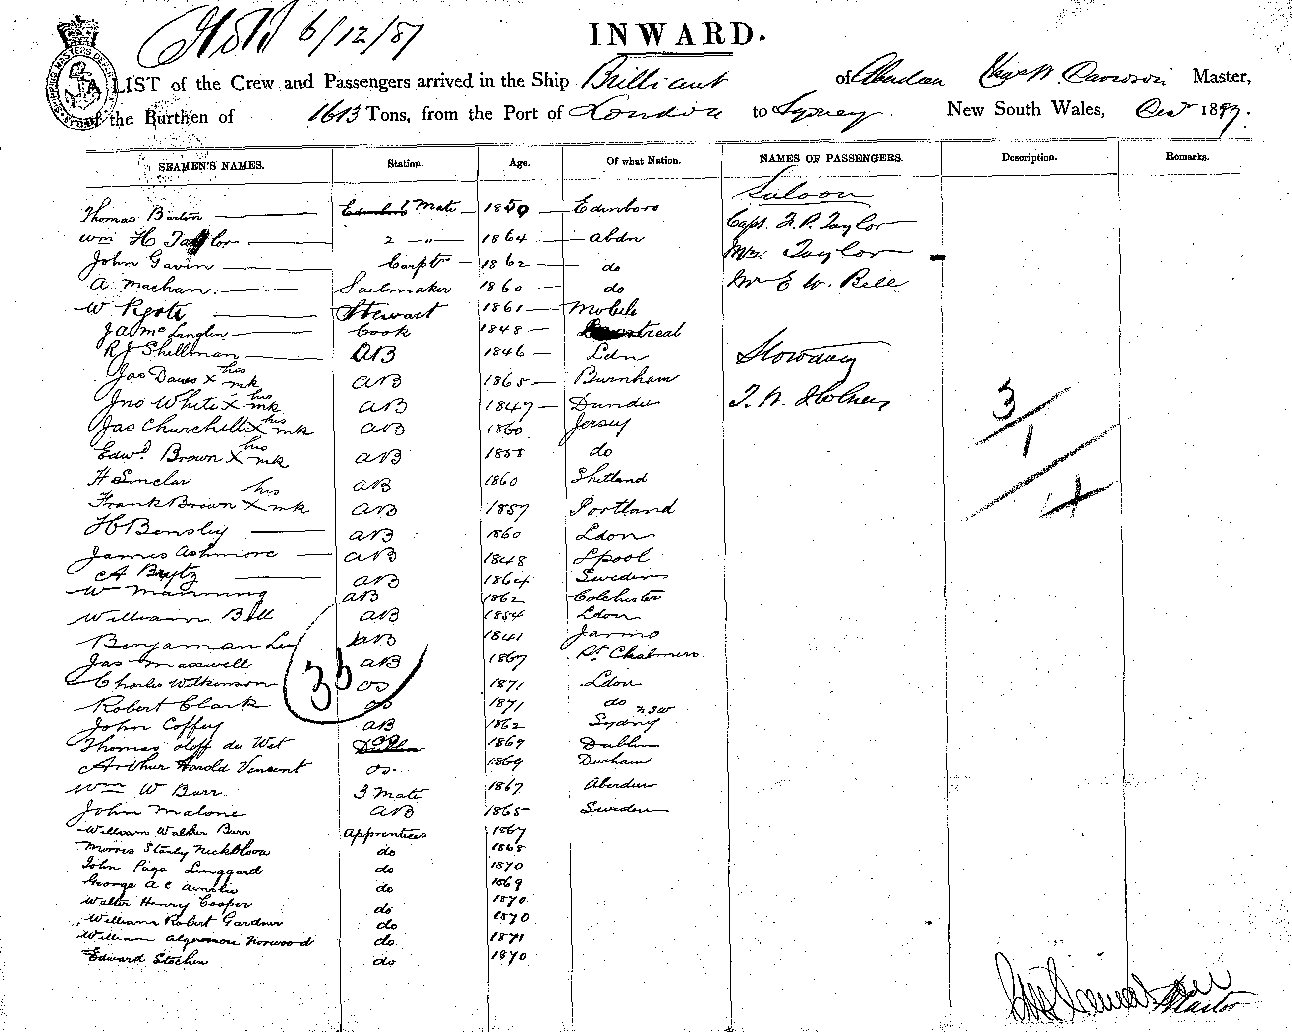 6/12/87
INWARD.
A LIST of the Crew and Passengers arrived in the Ship Brilliant of Aberdeen Master,
of the Burthen of 1613 Tons, from the Port of London to Sydney New South Wales, Decr 1887.
SEAMEN'S NAMES. Station. Age. Of what Nation. NAMES OF PASSENGERS. Description. Remarks.
Saloon
Thomas Barton Mate 1850 Edinboro Capt. F. P. Taylor
Wm H Taylor 2 -"- 1864 Abdn Mrs. Taylor
John Gavin Carptr 1862 do
A. Machan Sailmaker 1860 do Mr E W. Bell
W Stewart 1861 Mobile
Ja Mc Cook 1848 Montreal
R J Shellman AB 1846 Ldn Stowaway
Jas Daws X his mk AB 1865 Burnham
Jno White X his mk AB 1847 Dundee T. W. Holmes
Jas Churchill X his mk AB 1860 Jersey
3/1
Edwd. Brown X his mk AB 1858 do
H Sinclar AB 1860 Shetland
4
Frank Brown X his mk AB 1857 Portland
H Bensley AB 1860 Ldon
James Ashmore AB 1848 Lpool
A AB 1864 Sweden
Wm Manning AB 1862 Colchester
William Bell AB 1854 Ldon
Benjaman AB 1841
Jas Maxwell AB 1867 Pt Chalmers
35
Charles Wilkinson OS 1871 Ldon
Robert Clark OS 1871 do
John Coffey AB 1862 Sydney NSW
Thomas oloff de Wet 1869 Dublin
Arthur Harold Vincent OS. 1869 Durham
Wm W Burr 3 Mate 1867 Aberdeen
John Malone AB 1865 Sweden
William Walker Burr Apprentices 1867
Morris Stanly do 1868
John Page do 1870
George A C do 1869
Walter Henry Cooper do 1870
William Robert Gardner do 1870
William Algernon Norwood do 1871
Edward do 1870
Master